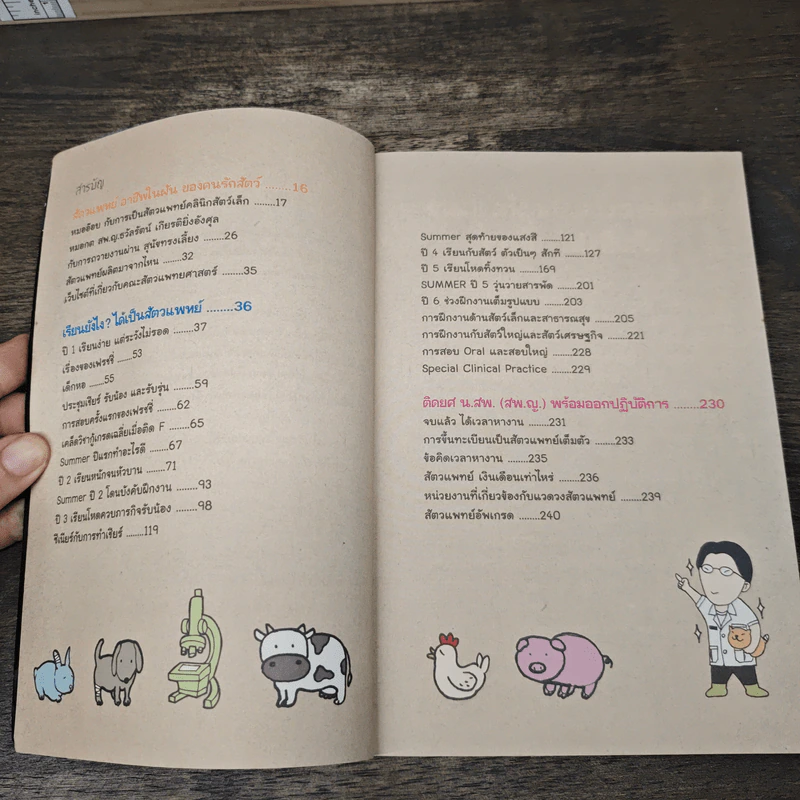 สารบัญ
สัตวแพทย์ อาชีพในฝัน ของคนรักสัตว์ ........16
หมออ้อย กับการเป็นสัตวแพทย์คลินิกสัตว์เล็ก ........17
หมอกด สพ.ญ.ธวัลรัตน์ เกียรติยิ่งอังศุล
กับการถวายงานผ่าน สุนัขทรงเลี้ยง ........26
สัตวแพทย์ผลิตมาจากไหน ........32
เว็บไซต์ที่เกี่ยวกับคณะสัตวแพทยศาสตร์ ........35
เรียนยังไง? ได้เป็นสัตวแพทย์ ........36
ปี 1 เรียนง่าย แต่ระวังไม่รอด ........37
เรื่องของเฟรชชี่ ......53
เด็กหอ ......55
ประชุมเชียร์ รับน้อง และรับรุ่น ........59
การสอบครั้งแรกของเฟรชชี่ ........62
เคล็ดวิชากู้เกรดเฉลี่ยเมื่อติด F ........65
Summer ปีแรกทำอะไรดี ........67
ปี 2 เรียนหนักจนหัวบาน ........71
Summer ปี 2 โดนบังคับฝึกงาน ........93
ปี 3 เรียนโหดควบภารกิจรับน้อง ........98
ซีเนียร์กับการทำเชียร์ ........119
Summer สุดท้ายของแสงสี ........121
ปี 4 เรียนกับสัตว์ ตัวเป็นๆ สักที ........127
ปี 5 เรียนโหดทิ้งทวน ........169
SUMMER ปี 5 วุ่นวายสารพัด ........201
ปี 6 ช่วงฝึกงานเต็มรูปแบบ ........203
การฝึกงานด้านสัตว์เล็กและสาธารณสุข ........205
การฝึกงานกับสัตว์ใหญ่และสัตว์เศรษฐกิจ ........221
การสอบ Oral และสอบใหญ่ ........228
Special Clinical Practice ........229
ติดยศ น.สพ. (สพ.ญ.) พร้อมออกปฏิบัติการ ........230
จบแล้ว ได้เวลาหางาน ........231
การขึ้นทะเบียนเป็นสัตวแพทย์เต็มตัว ........233
ข้อคิดเวลาหางาน ........235
สัตวแพทย์ เงินเดือนเท่าไหร่ ........236
หน่วยงานที่เกี่ยวข้องกับแวดวงสัตวแพทย์ ........239
สัตวแพทย์อัพเกรด ........240